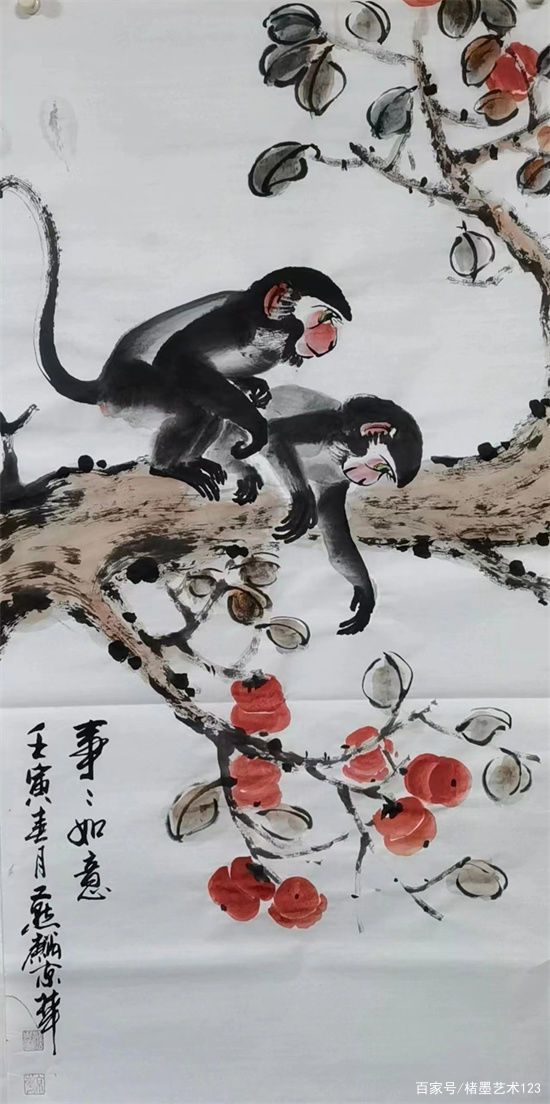 事〻如意
壬寅春月 京華
百家号/楮墨艺术123